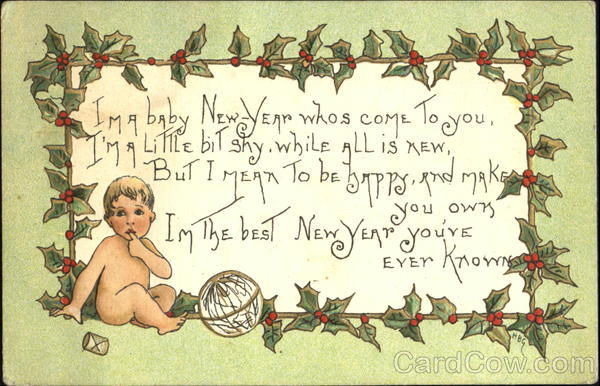 I'm a baby New-Year whos come to you,
I'm a little bit shy, while all is new,
But I mean to be happy, and make
you own
I'm the best New Year you've
ever known
HBG
CardCow.com